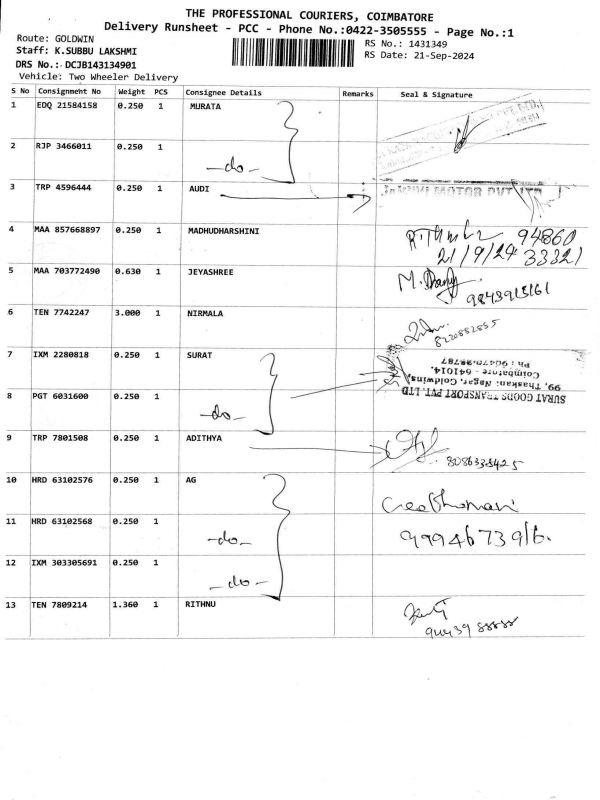 THE PROFESSIONAL COURIERS, COIMBATORE
Delivery Runsheet - PCC - Phone No.:0422-3505555 - Page No.:1
Route: GOLDWIN
RS No.: 1431349
Staff: K.SUBBU LAKSHMI
RS Date: 21-Sep-2024
DRS No.: DCJB143134901
Vehicle: Two Wheeler Delivery
S No Consignment No Weight PCS Consignee Details Remarks Seal & Signature
1 EDQ 21584158 0.250 1 MURATA
2 RJP 3466011 0.250 1 -do-
3 TRP 4596444 0.250 1 AUDI MOTOR PVT LTD
4 MAA 857668897 0.250 1 MADHUDHARSHINI 94860
21/9/24 33321
5 MAA 703772490 0.630 1 JEYASHREE
9843913161
6 TEN 7742247 3.000 1 NIRMALA
8220852855
7 IXM 2280818 0.250 1 SURAT
SURAT GOODS TRANSPORT PVT. LTD
99, Thaskan Nagar, Goldwins,
Coimbatore - 641014.
8 PGT 6031600 0.250 1 -do-
9 TRP 7801508 0.250 1 ADITHYA
10 HRD 63102576 0.250 1 AG
11 HRD 63102568 0.250 1 -do-
9994673916.
12 IXM 303305691 0.250 1 -do-
13 TEN 7809214 1.360 1 RITHNU